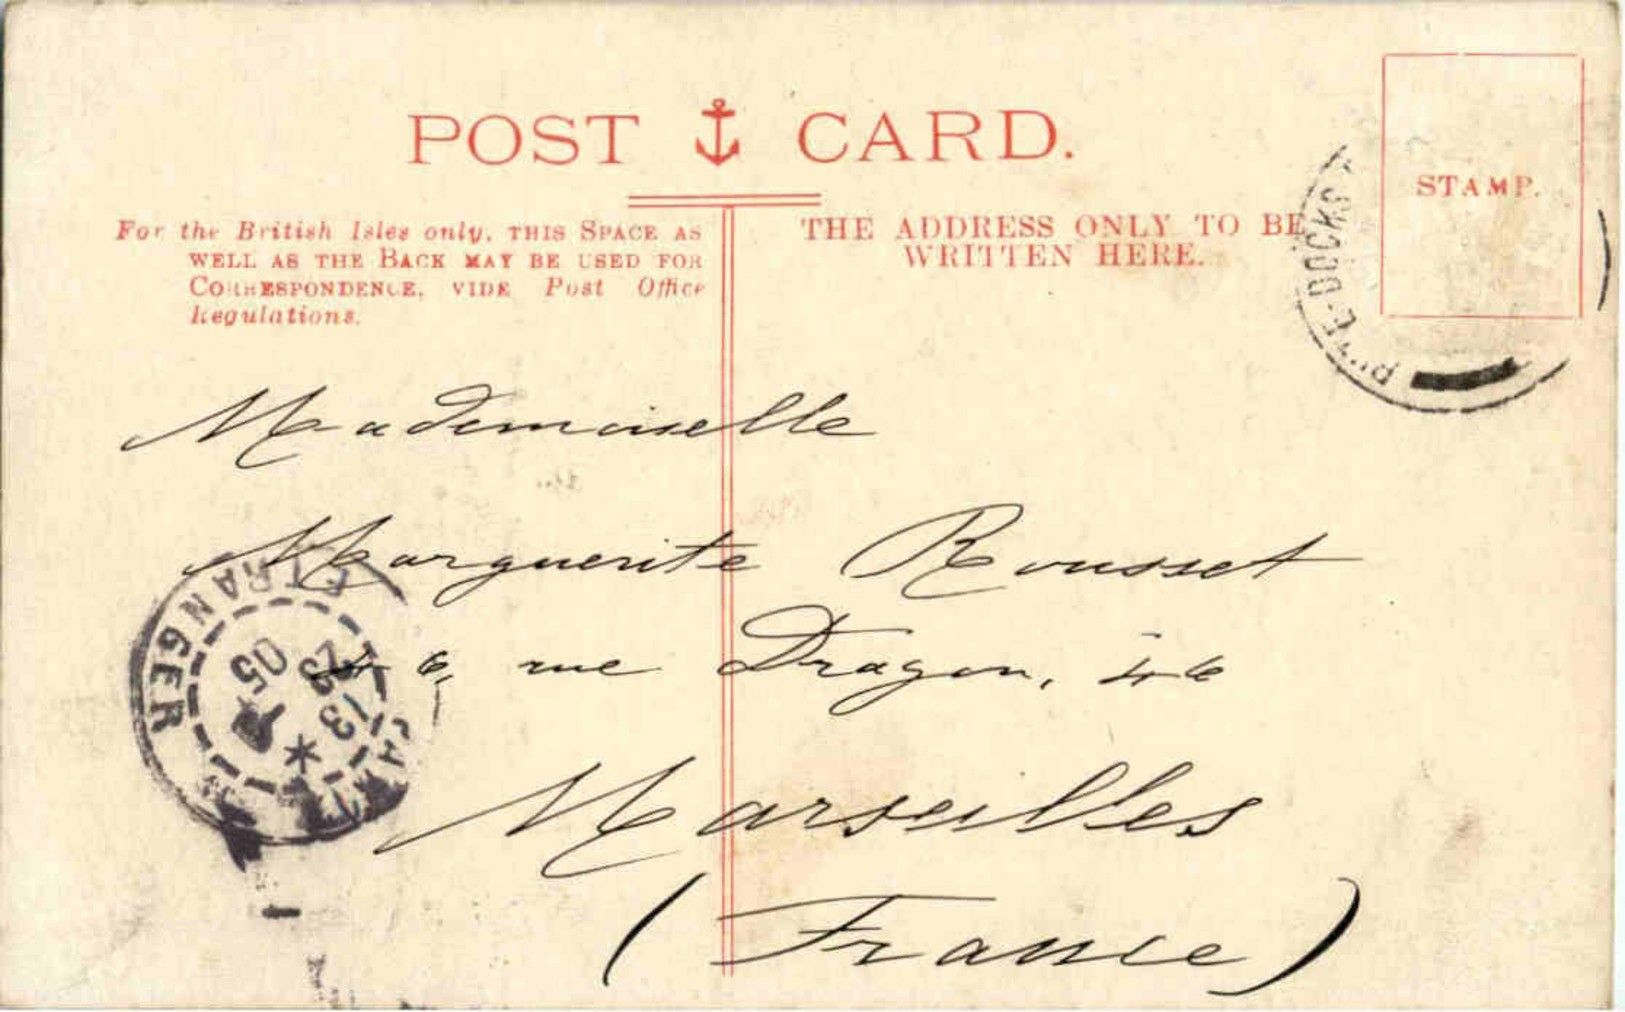 POST CARD.
For the British Isles only, THIS SPACE AS
WELL AS THE BACK MAY BE USED FOR
CORRESPONDENCE, VIDE Post Office
Regulations.
THE ADDRESS ONLY TO BE
WRITTEN HERE.
STAMP.
DOCKS
Mademoiselle
Marguerite Rousset
46, rue Dragon, 46
Marseilles
(France)
ETRANGER
13
05